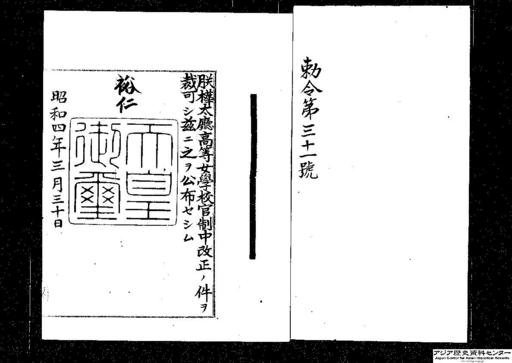 勅令第三十一號
朕樺太廳高等女學校官制中改正ノ件ヲ
裁可シ茲ニ之ヲ公布セシム
裕仁
天皇
御璽
昭和四年三月三十日
アジア歴史資料センター
Japan Center for Asian Historical Records